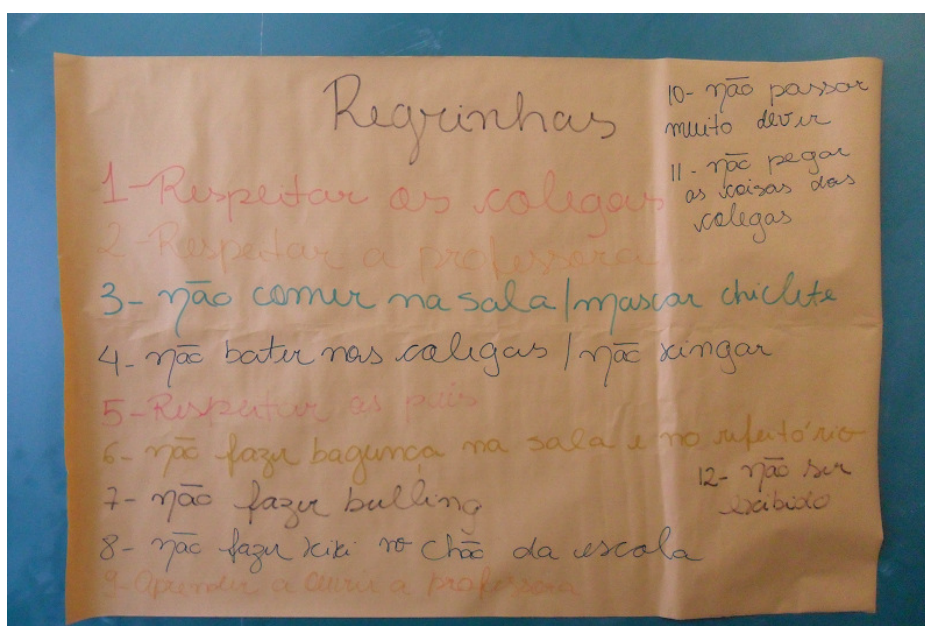 Regrinhas
1-Respeitar os colegas
2-Respeitar a professora
3- não comer na sala/mascar chiclete
4- não bater nos colegas / não xingar
5-Respeitar os pais
6- não fazer bagunça na sala e no refeitório
7- não fazer bulling
8- não fazer xixi no chão da escola
9-Aprender a ouvir a professora
10- não passar
muito dever
11- não pegar
as coisas dos
colegas
12- não ser
exibido